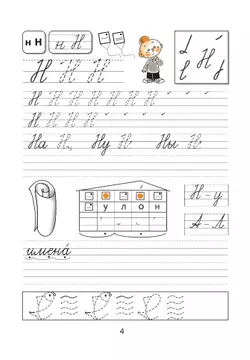 н Н н Н Н
Н Н Н
Н Н Н Н Н Н Н
Н Н Н Н Н
На Н, Ну Н Ны Н
Н - у
у л о н
А - Л
имена
4